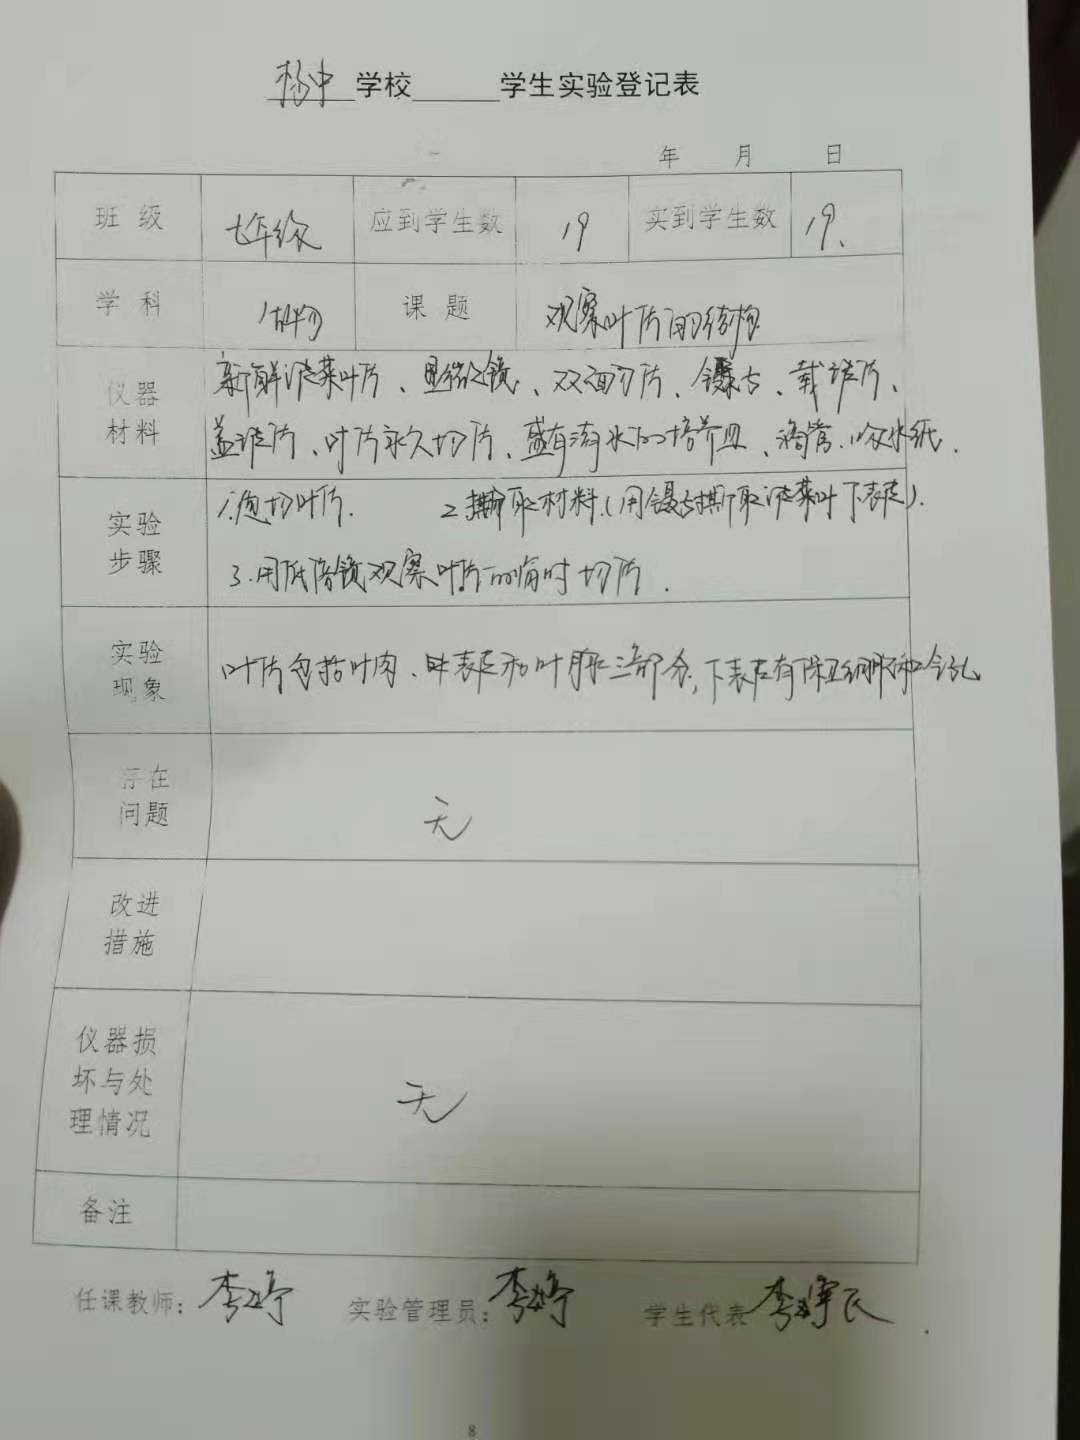 杨中学校______学生实验登记表
年 月 日
班级 七年级 应到学生数 19 实到学生数 19.
学科 生物 课题 观察叶片的结构
仪器材料 新鲜菠菜叶片、显微镜、双面刀片、镊子、载玻片、
盖玻片、叶片永久切片、盛有清水的培养皿、滴管、吸水纸.
实验步骤 1.急切叶片. 2.撕取材料.(用镊子撕取菠菜叶下表皮).
3.用低倍镜观察叶片的临时切片.
实验现象 叶片包括叶肉、表皮和叶脉三部分,下表皮有保卫细胞和气孔
存在问题 无
改进措施
仪器损坏与处理情况 无
备注
任课教师: 李 实验管理员: 李 学生代表 李
8